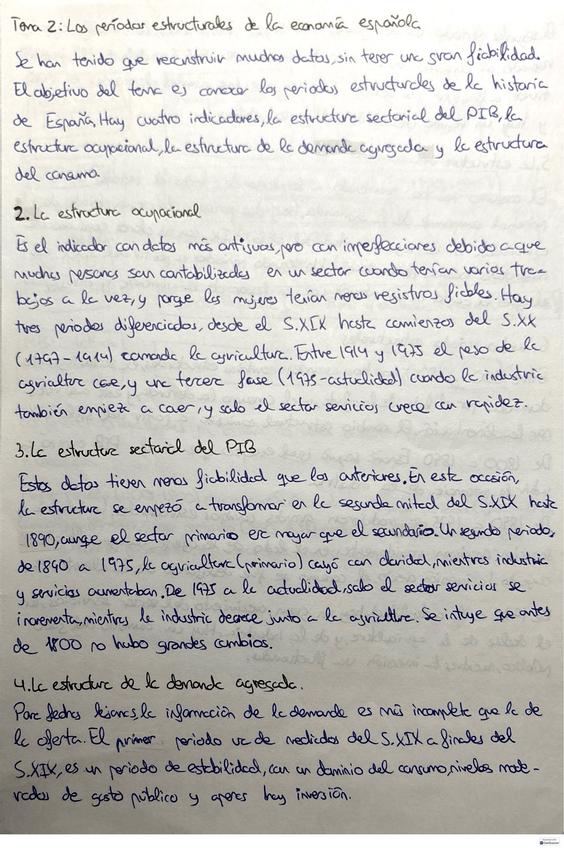 Tema 2: Los períodos estructurales de la economía española
Se han tenido que reconstruir muchos datos, sin tener una gran fiabilidad.
El objetivo del tema es conocer los periodos estructurales de la historia
de España. Hay cuatro indicadores, la estructura sectorial del PIB, la
estructura ocupacional, la estructura de la demanda agregada y la estructura
del consumo.
2. La estructura ocupacional
Es el indicador con datos más antiguos, pero con imperfecciones debido a que
muchas personas son contabilizadas en un sector cuando tenían varios tra-
bajos a la vez, y porqe las mujeres tenían menos registros fiables. Hay
tres periodos diferenciados, desde el S.XIX hasta comienzos del S.XX
(1797-1914) comanda la agricultura. Entre 1914 y 1975 el peso de la
agricultura cae, y una tercera fase (1975-actualidad) cuando la industria
también empieza a caer, y solo el sector servicios crece con rapidez.
3. La estructura sectorial del PIB
Estos datos tienen menos fiabilidad que los anteriores. En esta ocasión,
la estructura se empezó a transformar en la segunda mitad del S.XIX hasta
1890, aunqe el sector primario era mayor que el secundario. Un segundo periodo,
de 1890 a 1975, la agricultura (primario) cayó con claridad, mientras industria
y servicios aumentaban. De 1975 a la actualidad, solo el sector servicios se
incrementa, mientras la industria decrece junto a la agricultura. Se intuye que antes
de 1800 no hubo grandes cambios.
4. La estructura de la demanda agregada.
Para fechas lejanas, la información de la demanda es más incompleta que la de
la oferta. El primer periodo va de mediados del S.XIX a finales del
S.XIX, es un periodo de estabilidad, con un dominio del consumo, niveles mode-
rados de gasto público y apenas hay inversión.